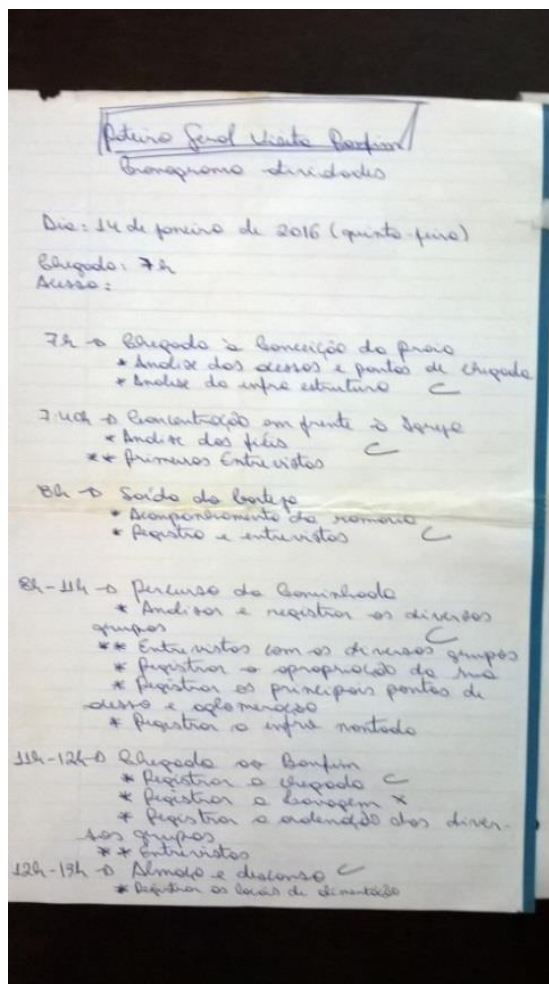 Roteiro Geral Visita Bonfim
Cronograma atividades
Dia: 14 de janeiro de 2016 (quinta-feira)
Chegada: 7h
Acesso:
7h → Chegada à Conceição da Praia
* Análise dos acessos e pontos de chegada
* Análise da infra estrutura C
7:40h → Concentração em frente à Igreja
* Análise dos fiéis C
** Primeiras Entrevistas
8h → Saída do Cortejo
* Acompanhamento da romaria
* Registro e entrevistas C
8h-11h → Percurso da Caminhada
* Analisar e registrar os diversos
grupos C
** Entrevistas com os diversos grupos
* Registrar a apropriação da rua
* Registrar os principais pontos de
acesso e aglomeração
* Registrar a infra montada
11h-12h → Chegada ao Bonfim
* Registrar a chegada C
* Registrar a lavagem x
* Registrar a ordenação dos diver-
sos grupos
** Entrevistas
12h-13h → Almoço e descanso C
* Registrar os locais de alimentação